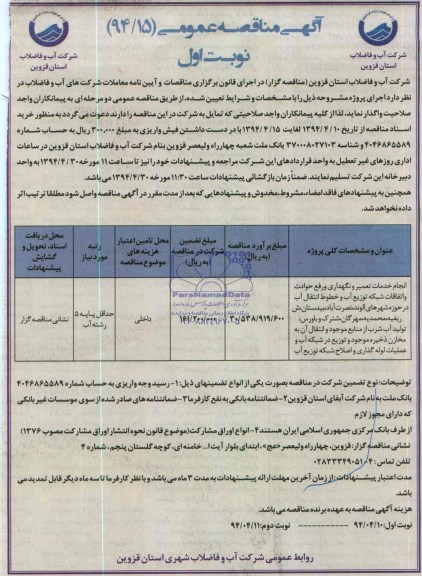 آگهی مناقصه عمومی (۹۴/۱۵)
نوبت اول
شرکت آب و فاضلاب
استان قزوین
شرکت آب و فاضلاب
استان قزوین
شرکت آب و فاضلاب استان قزوین (مناقصه گزار) در اجرای قانون برگزاری مناقصات و آیین نامه معاملات شرکت های آب و فاضلاب در
نظر دارد اجرای پروژه مشروحه ذیل را با مشخصات و شرایط تعیین شده، از طریق مناقصه عمومی دو مرحله ای به پیمانکاران واجد
صلاحیت واگذار نماید، لذا از کلیه پیمانکاران واجد صلاحیتی که تمایل به شرکت در این مناقصه را دارند دعوت می گردد به منظور خرید
اسناد مناقصه از تاریخ ۱۳۹۴/۰۴/۱۰ لغایت ۱۳۹۴/۰۴/۱۵ با در دست داشتن فیش واریزی به مبلغ ۳۰۰,۰۰۰ ریال به حساب شماره
۴۰۴۶۸۶۵۵۸۹ و شناسه ۳۷۰۰۰۸۰۲۷۱۰۳ بانک ملت شعبه چهارراه ولیعصر قزوین بنام شرکت آب و فاضلاب استان قزوین در ساعات
اداری روزهای غیر تعطیل به واحد قراردادهای این شرکت مراجعه و پیشنهادات خود را نیز تا ساعت ۱۱ مورخه ۱۳۹۴/۰۴/۳۰ به واحد
دبیرخانه این شرکت تسلیم نمایند. ضمناً زمان بازگشائی پیشنهادات ساعت ۱۱:۳۰ مورخه ۱۳۹۴/۰۴/۳۰ می باشد.
همچنین به پیشنهادهای فاقد امضاء، مشروط، مخدوش و پیشنهادهایی که بعد از مدت مقرر در آگهی مناقصه واصل شود مطلقا ترتیب اثر
داده نخواهد شد.
عنوان و مشخصات کلی پروژه
مبلغ برآورد مناقصه
(به ریال)
مبلغ تضمین
شرکت در مناقصه
(به ریال)
محل تامین اعتبار
هزینه های
موضوع مناقصه
رتبه
مورد نیاز
محل دریافت
اسناد، تحویل و
گشایش
پیشنهادات
انجام خدمات تعمیر و نگهداری و رفع حوادث
واتفاقات شبکه توزیع آب و خطوط انتقال آب
در حوزه شهرهای الوند، نصرت آباد، بیدستان، ش
ریفیه، محمدیه، مهرگان، شترک و باورس،
تولید آب شرب از منابع موجود و انتقال آن به
مخازن ذخیره موجود و توزیع در شبکه آب و
عملیات لوله گذاری و اصلاح شبکه توزیع آب
داخلی
حداقل پایه ۵
رشته آب
نشانی مناقصه گزار
ParsNamadData
توضیحات: نوع تضمین شرکت در مناقصه بصورت یکی از انواع تضمینهای ذیل: ۱- رسید وجه واریزی به حساب شماره ۴۰۴۶۸۶۵۵۸۹
بانک ملت به نام شرکت آبفای استان قزوین ۲- ضمانتنامه بانکی به نفع کارفرما ۳- ضمانتنامه های صادر شده از سوی موسسات غیر بانکی
که دارای مجوز لازم
از طرف بانک مرکزی جمهوری اسلامی ایران هستند ۴- انواع اوراق مشارکت (موضوع قانون نحوه انتشار اوراق مشارکت مصوب ۱۳۷۶)
نشانی مناقصه گزار: قزوین، چهارراه ولیعصر «عج»، ابتدای بلوار آیت ا... خامنه ای، کوچه گلستان پنجم، شماره ۴
تلفن تماس: ۴-۰۲۸۳۳۳۴۹۰۵۱
مدت اعتبار پیشنهادات: از زمان آخرین مهلت ارائه پیشنهادات به مدت ۳ ماه می باشد و با نظر کارفرما تا سه ماه دیگر قابل تمدید می
باشد.
هزینه آگهی مناقصه به عهده برنده مناقصه می باشد.
نوبت اول: ۹۴/۰۴/۱۰ ---------- نوبت دوم: ۹۴/۰۴/۱۱
روابط عمومی شرکت آب و فاضلاب شهری استان قزوین